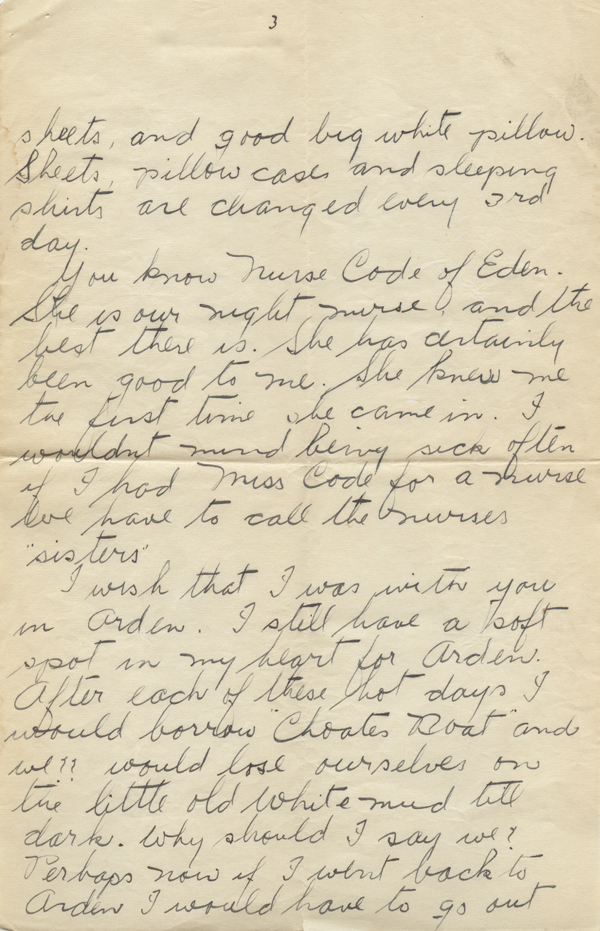 3
sheets, and good big white pillow.
Sheets, pillow cases and sleeping
shirts are changed every 3rd
day.
You know Nurse Code of Eden.
She is our night nurse, and the
best there is. She has certainly
been good to me. She knew me
the first time she came in. I
wouldnt mind being sick often
if I had Miss Code for a nurse
We have to call the nurses
"sisters"
I wish that I was with you
in Arden. I still have a soft
spot in my heart for Arden.
After each of these hot days I
would borrow "Choates Boat" and
we?? would lose ourselves on
the little old White mud till
dark. Why should I say we?
Perhaps now if I went back to
Arden I would have to go out